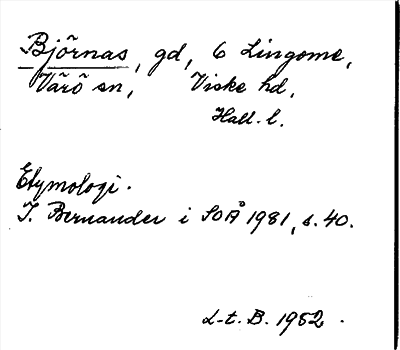 Björnas, gd, 6 Lingome,
Värö sn, Viske hd,
Hall. l.
Etymologi.
I. Bernander i SOÅ 1981, s. 40.
L-t. B. 1952.